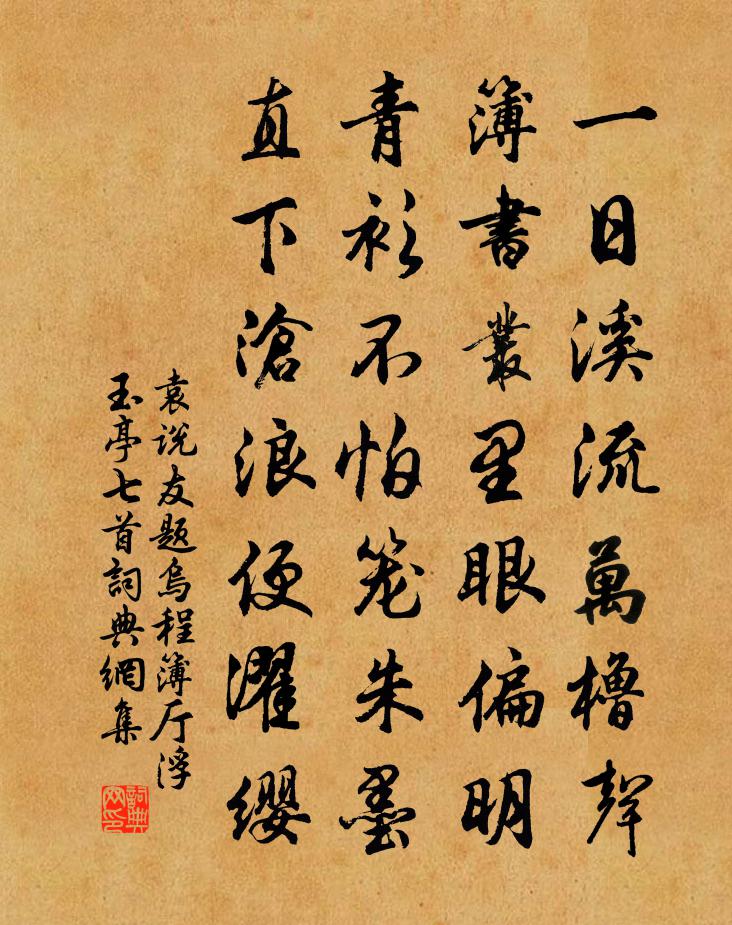 一日溪流萬櫓聲
簿書叢里眼偏明
青衫不怕笼朱墨
直下滄浪便濯纓
袁说友題烏程簿厅浮
玉亭七首詞典網集
詞典网印